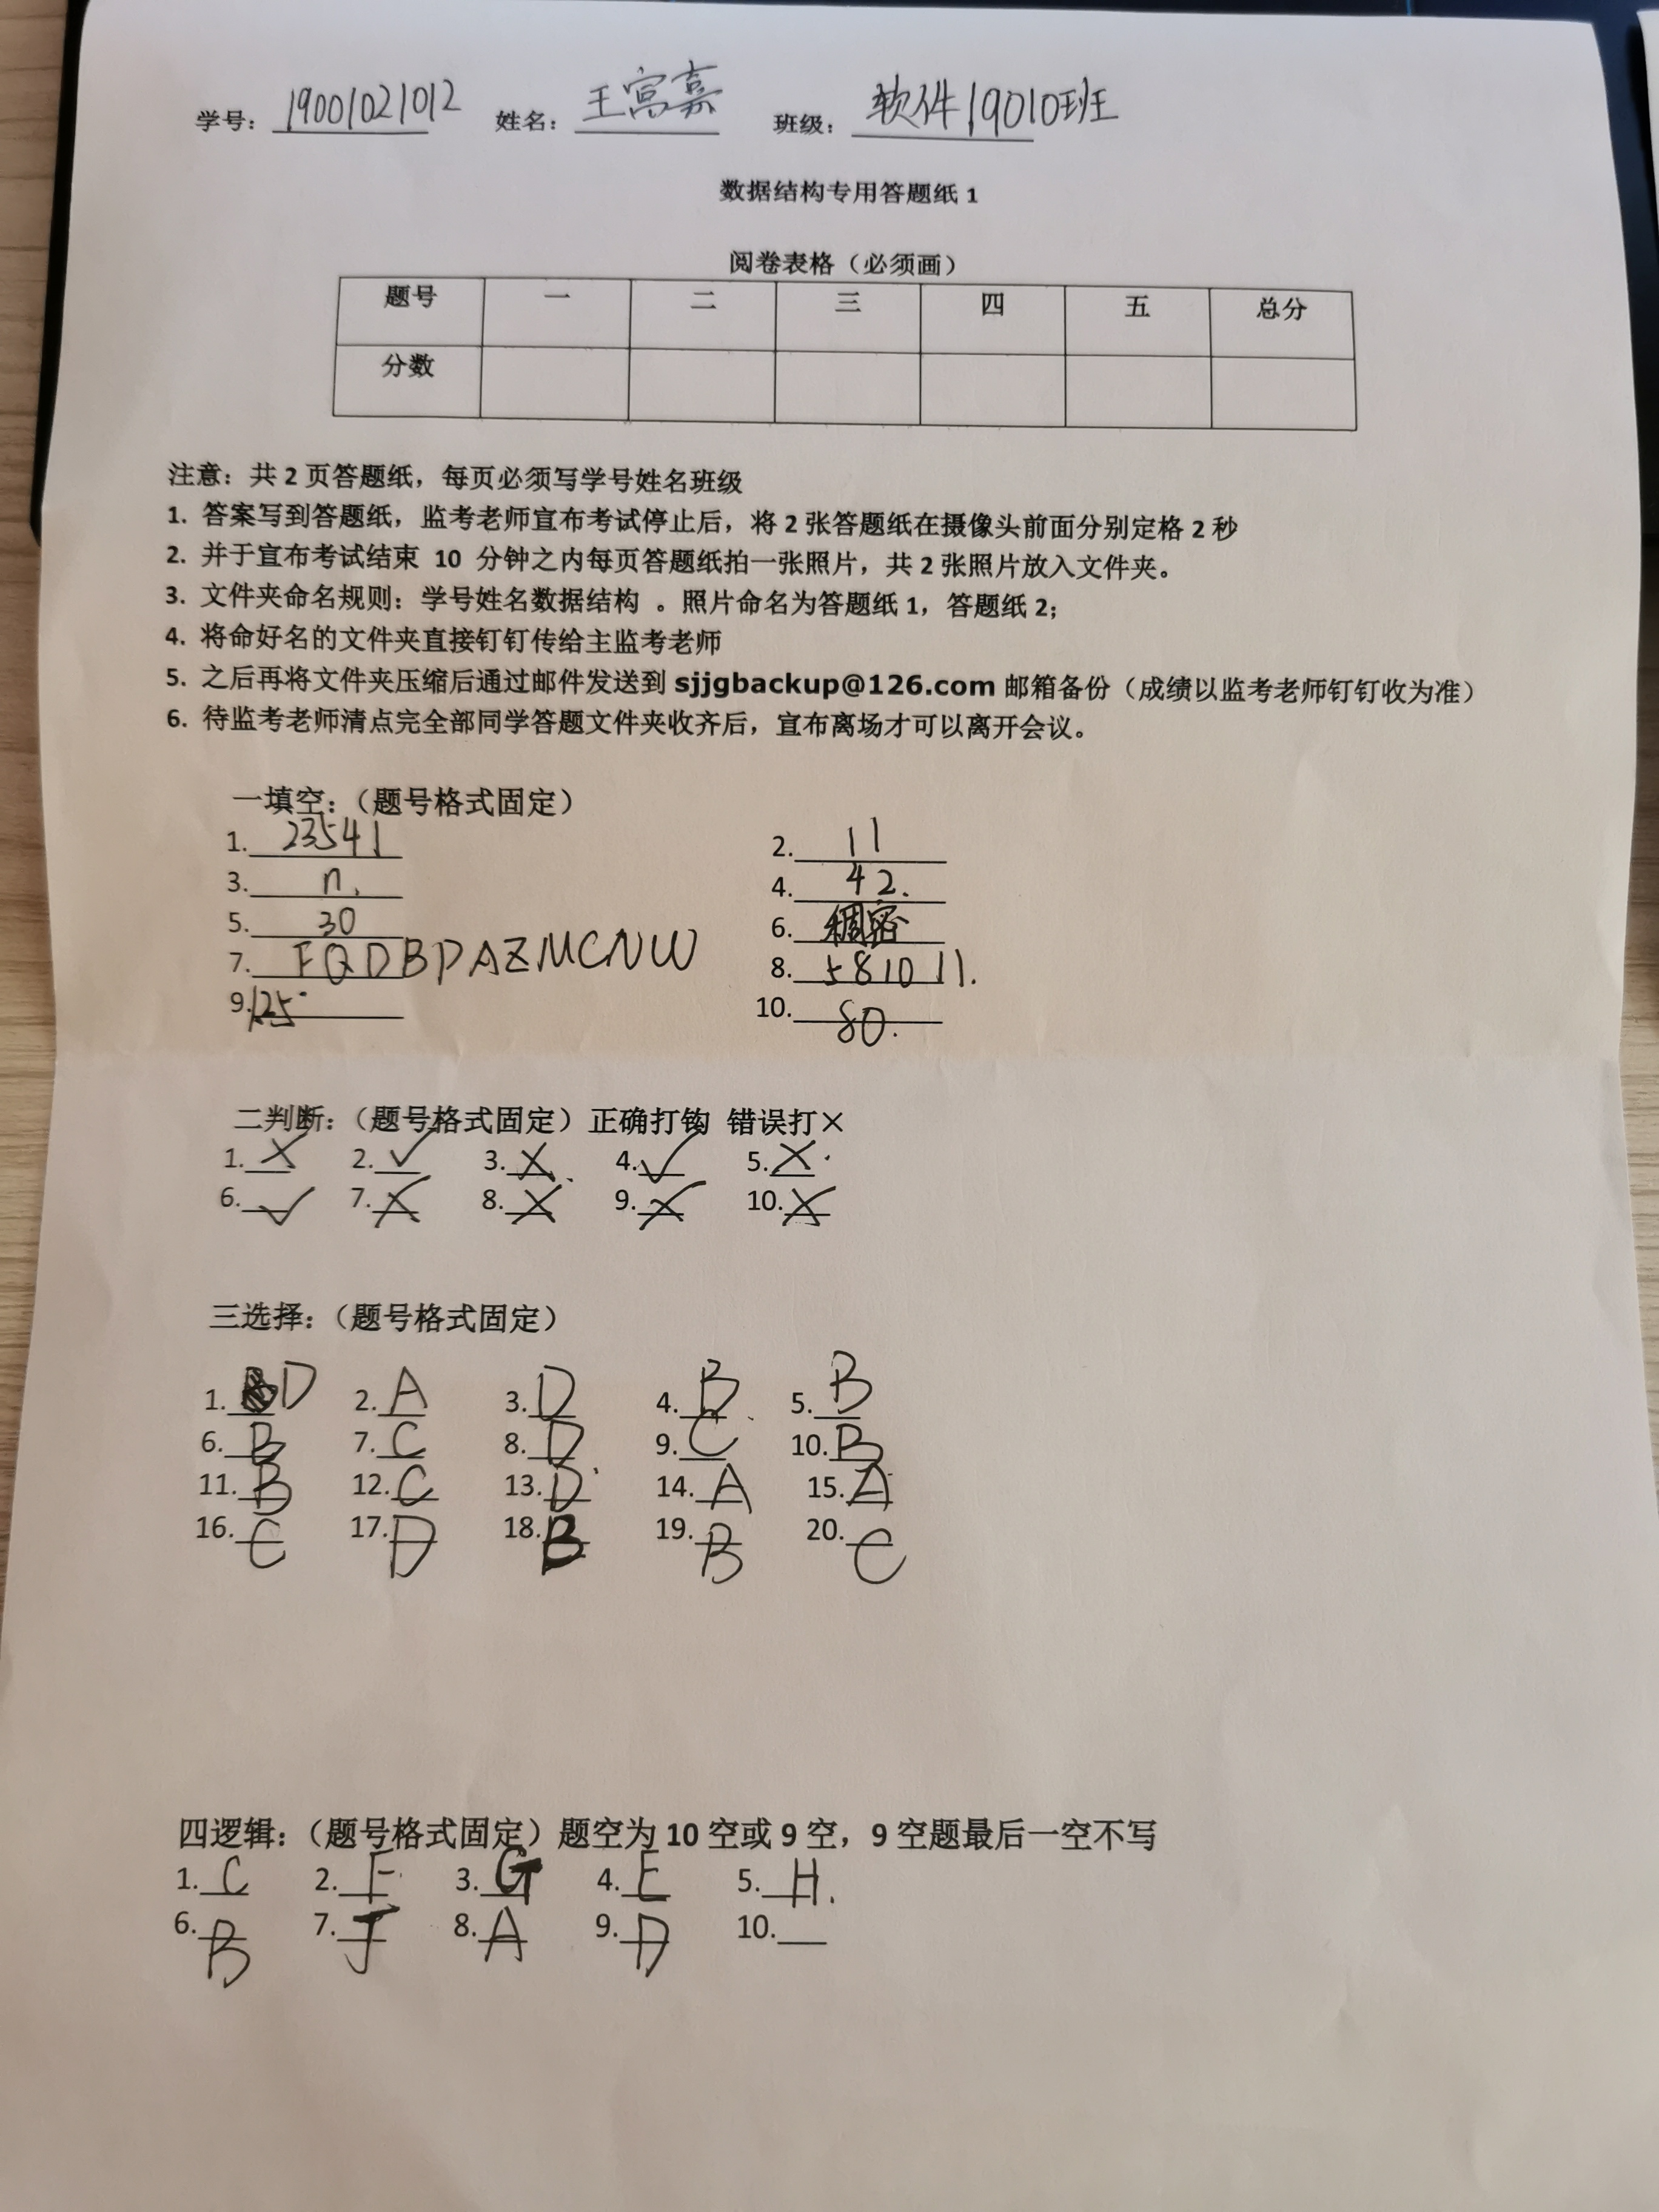 学号：19001021012 姓名：王宫嘉 班级：软件19010班
数据结构专用答题纸 1
阅卷表格（必须画）
题号 一 二 三 四 五 总分
分数
注意：共 2 页答题纸，每页必须写学号姓名班级
1. 答案写到答题纸，监考老师宣布考试停止后，将 2 张答题纸在摄像头前面分别定格 2 秒
2. 并于宣布考试结束 10 分钟之内每页答题纸拍一张照片，共 2 张照片放入文件夹。
3. 文件夹命名规则：学号姓名数据结构 。照片命名为答题纸 1，答题纸 2；
4. 将命好名的文件夹直接钉钉传给主监考老师
5. 之后再将文件夹压缩后通过邮件发送到 sjjgbackup@126.com 邮箱备份（成绩以监考老师钉钉收为准）
6. 待监考老师清点完全部同学答题文件夹收齐后，宣布离场才可以离开会议。
一填空：（题号格式固定）
1. 23541 2. 11
3. n. 4. 42.
5. 30 6. 稠密
7. FQDBPAZMCNW 8. 5 8 10 11.
9. 125 10. 80.
二判断：（题号格式固定）正确打钩 错误打×
1. × 2. ✓ 3. × 4. ✓ 5. ×
6. ✓ 7. × 8. × 9. × 10. ×
三选择：（题号格式固定）
1. D 2. A 3. D 4. B 5. B
6. B 7. C 8. D 9. C 10. B
11. B 12. C 13. D 14. A 15. A
16. C 17. D 18. B 19. B 20. C
四逻辑：（题号格式固定）题空为 10 空或 9 空，9 空题最后一空不写
1. C 2. F 3. G 4. E 5. H.
6. B 7. J 8. A 9. D 10.